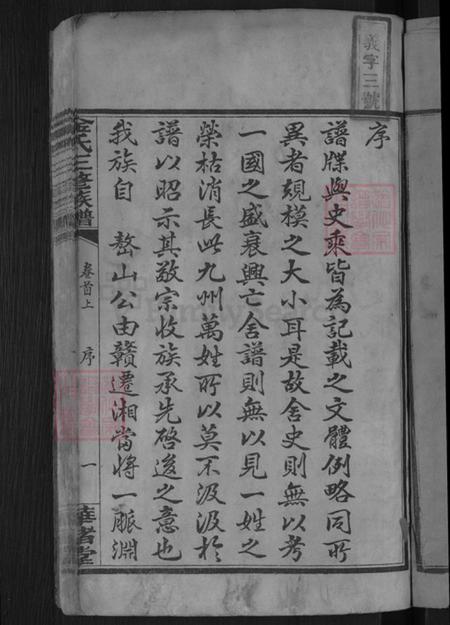 義字三號
序
譜牒與史乘皆為記載之文體例略同所
異者規模之大小耳是故舍史則無以考
一國之盛衰興亡舍譜則無以見一姓之
榮枯消長此九州萬姓所以莫不汲汲於
譜以昭示其敬宗收族承先啓後之意也
我族自 嶅山公由贛遷湘當將一脈淵
氏三修族譜
卷首上
序
一
堂
FamilySearch